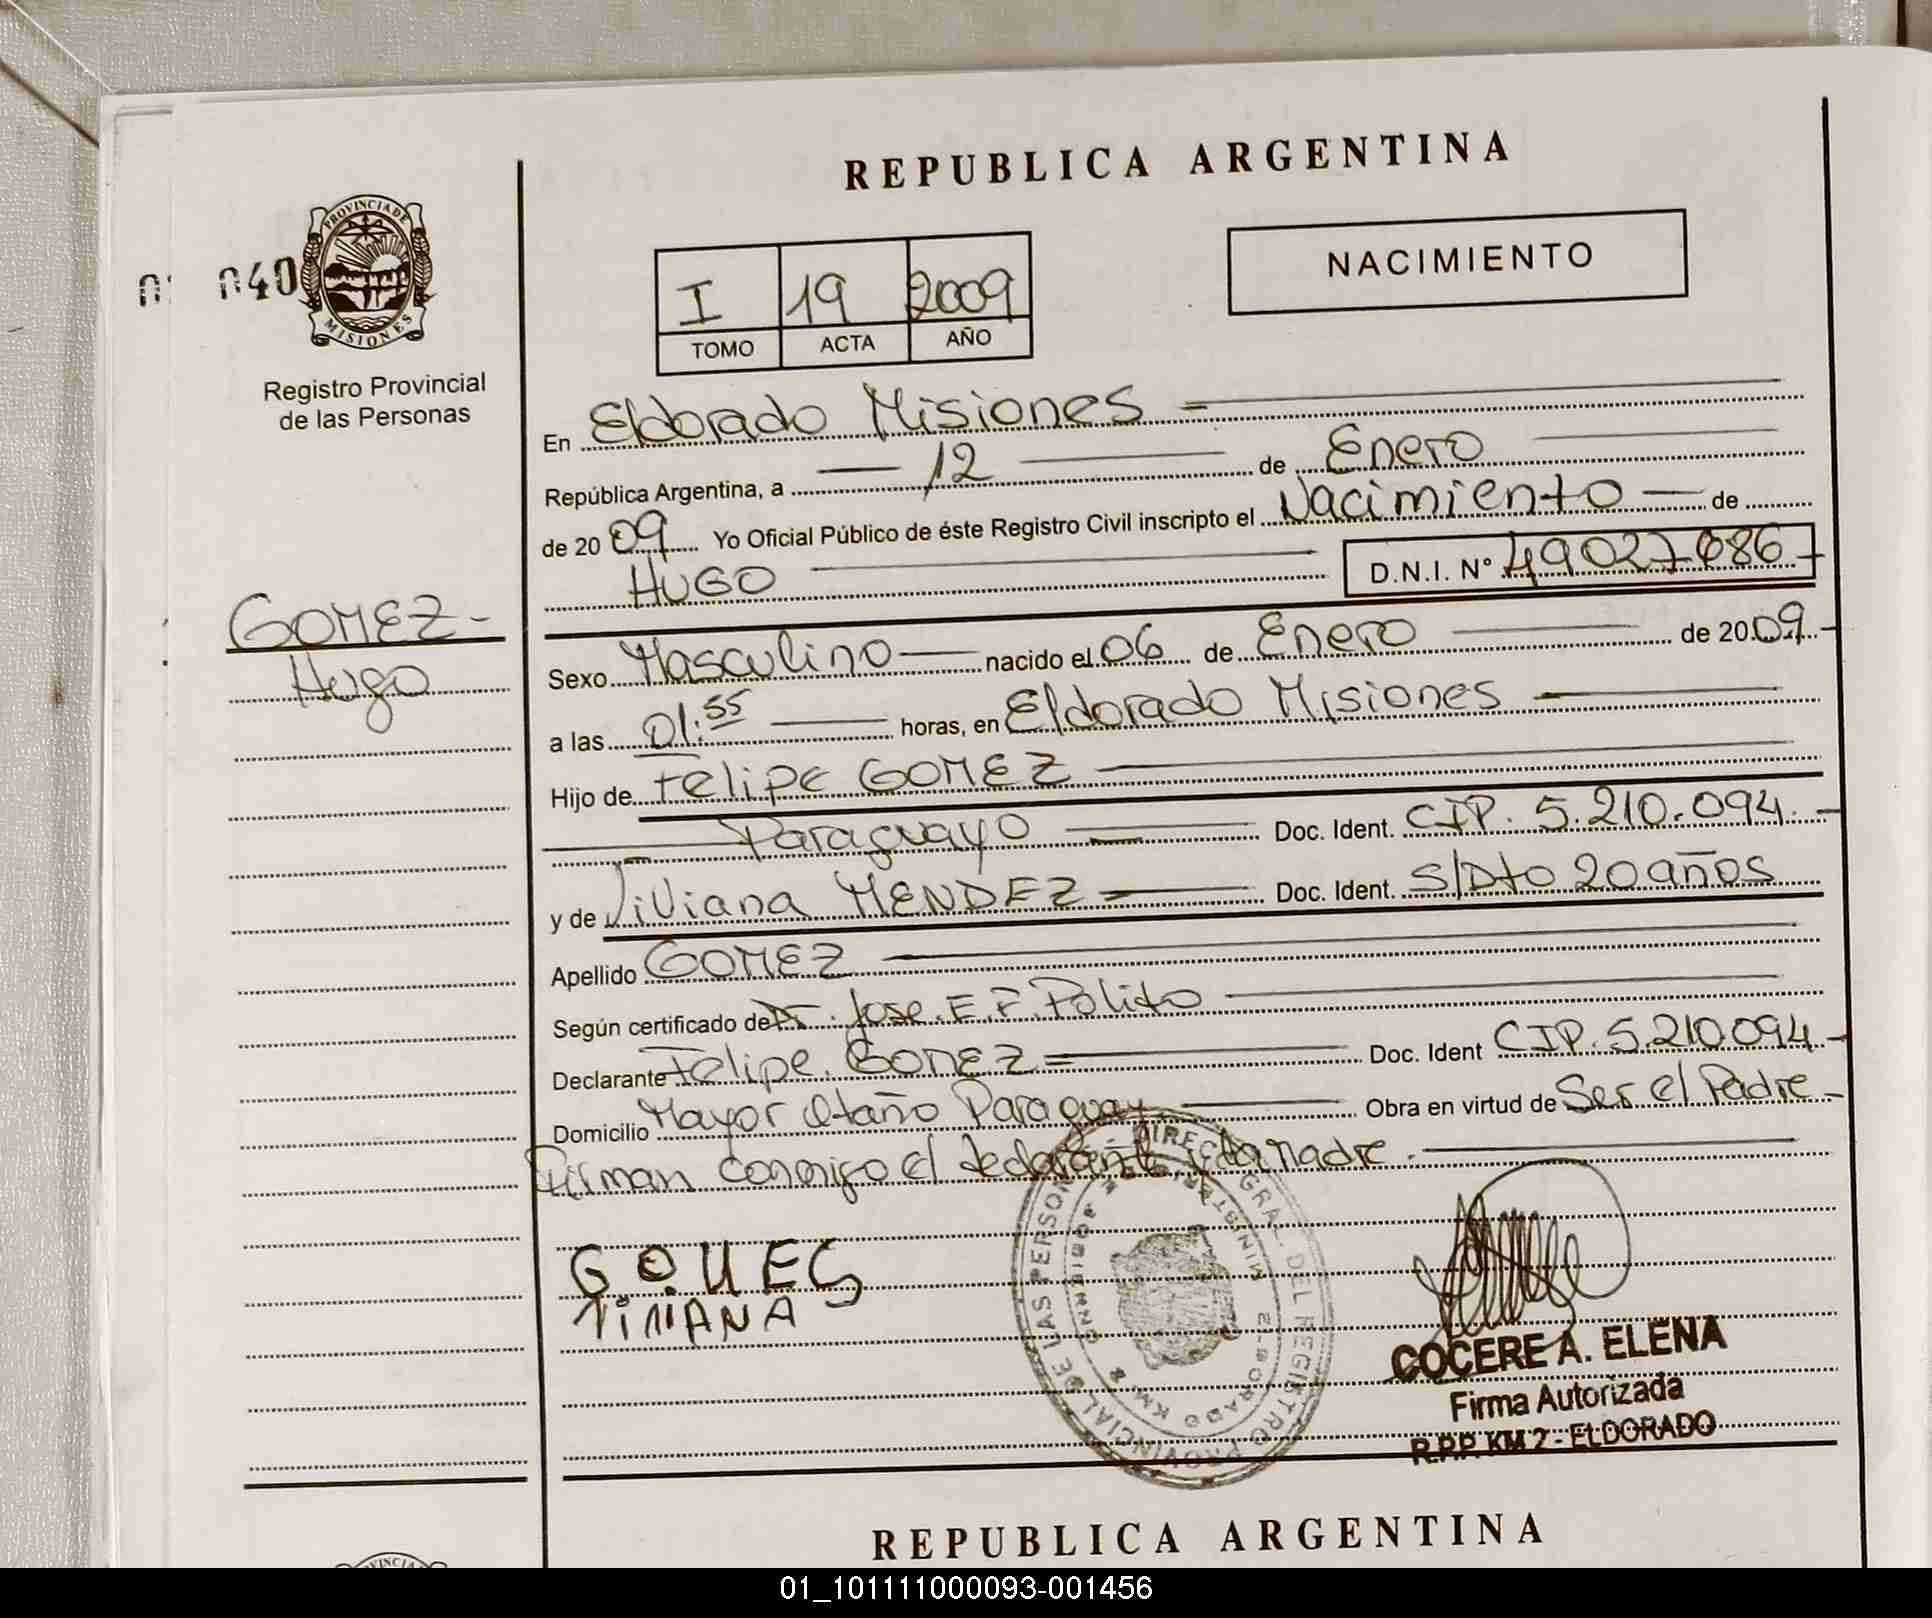 REPUBLICA ARGENTINA
NACIMIENTO
040
PROVINCIA DE
MISIONES
Registro Provincial
de las Personas
I 19 2009
TOMO ACTA AÑO
En Eldorado Misiones -
República Argentina, a 12 de Enero
de 2009 Yo Oficial Público de éste Registro Civil inscripto el Nacimiento de
HUGO D.N.I. N° 49027086-
GOMEZ-
Hugo
Sexo Masculino nacido el 06 de Enero de 2009.-
a las 01:55 horas, en Eldorado Misiones
Hijo de Felipe GOMEZ
Paraguayo Doc. Ident. CIP. 5.210.094.-
y de Viviana MENDEZ Doc. Ident. S/Dto 20 años
Apellido GOMEZ
Según certificado de Dr. Jose. E. F. Polito
Declarante Felipe. GOMEZ= Doc. Ident CIP. 5.210.094.-
Domicilio Mayor Otaño Paraguay Obra en virtud de Ser el Padre-
Firman conmigo el declarante y la Madre.
G.O.U.E.S
ViViANA
DIREC. GRAL. DEL REGISTRO PROVINCIAL DE LAS PERSON
ELDORADO KM 2
COCERE A. ELENA
Firma Autorizada
R.P.P. KM 2 - ELDORADO
REPUBLICA ARGENTINA
01_101111000093-001456